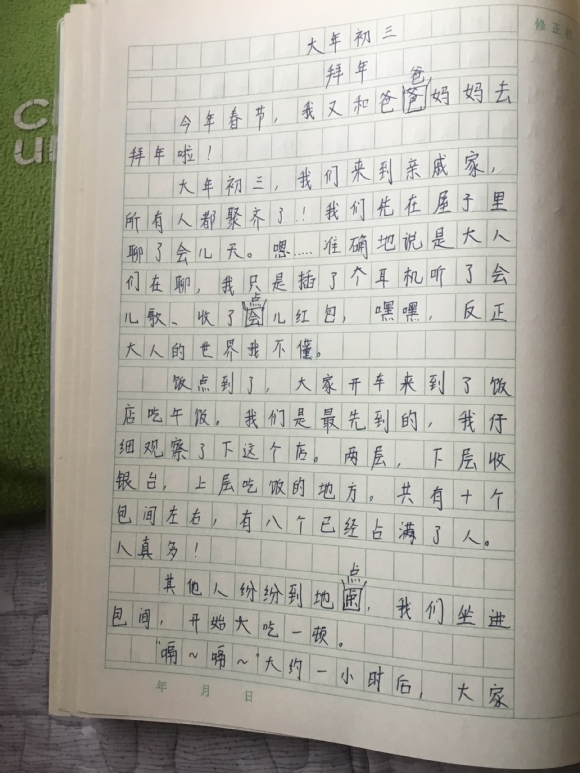 修正
大年初三
拜年
爸
今年春节，我又和爸爸妈妈去
拜年啦！
大年初三，我们来到亲戚家，
所有人都聚齐了！我们先在屋子里
聊了会儿天。嗯……准确地说是大人
们在聊，我只是插了个耳机听了会
点
儿歌、收了会儿红包，嘿嘿，反正
大人的世界我不懂。
饭点到了，大家开车来到了饭
店吃午饭。我们是最先到的，我仔
细观察了下这个店。两层，下层收
银台，上层吃饭的地方。共有十个
包间左右，有八个已经占满了人。
人真多！
点
其他人纷纷到地，我们坐进
包间，开始大吃一顿。
“嗝～嗝～”大约一小时后，大家
年 月 日